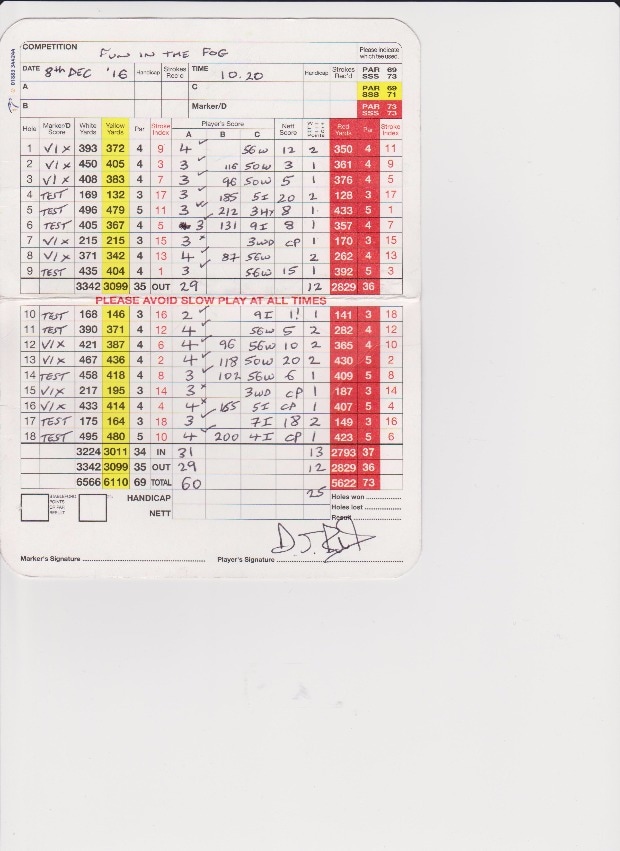 COMPETITION FUN IN THE FOG Please indicate which tee used.
DATE 8th DEC '16 Handicap Strokes Rec'd TIME 10.20 Handicap Strokes Rec'd PAR 69 SSS 73
A C PAR 69 SSS 71
B Marker/D PAR 73 SSS 73
Hole Marker/D Score White Yards Yellow Yards Par Stroke Index Player's Score A B C Nett Score Red Yards Par Stroke Index
1 V/X 393 372 4 9 4 ✓ 56W 12 2 350 4 11
2 V/X 450 405 4 3 3 ✓ 116 50W 3 1 361 4 9
3 V/X 408 383 4 7 3 ✓ 96 50W 5 1 376 4 5
4 TEST 169 132 3 17 3 ✓ 185 5I 20 2 128 3 17
5 TEST 496 479 5 11 3 ✓ 212 3HY 8 1 433 5 1
6 TEST 405 367 4 5 3 ✓ 131 9I 8 1 357 4 7
7 V/X 215 215 3 15 3 x 3WD CP 1 170 3 15
8 V/X 371 342 4 13 4 ✓ 87 56W 2 262 4 13
9 TEST 435 404 4 1 3 ✓ 56W 15 1 392 5 3
3342 3099 35 OUT 29 12 2829 36
PLEASE AVOID SLOW PLAY AT ALL TIMES
10 TEST 168 146 3 16 2 ✓ 9I 1! 1 141 3 18
11 TEST 390 371 4 12 4 ✓ 56W 5 2 282 4 12
12 V/X 421 387 4 6 4 ✓ 96 56W 10 2 365 4 10
13 V/X 467 436 4 2 4 ✓ 118 50W 20 2 430 5 2
14 TEST 458 418 4 8 3 ✓ 102 56W 6 1 409 5 8
15 V/X 217 195 3 14 3 x 3WD CP 1 187 3 14
16 V/X 433 414 4 4 4 x 165 5I CP 1 407 5 4
17 TEST 175 164 3 18 3 ✓ 7I 18 2 149 3 16
18 TEST 495 480 5 10 4 ✓ 200 4I CP 1 423 5 6
3224 3011 34 IN 31 13 2793 37
3342 3099 35 OUT 29 12 2829 36
6566 6110 69 TOTAL 60 5622 73
STABLEFORD POINTS OR PAR RESULT HANDICAP 25 Holes won
NETT Holes lost
Result
Marker's Signature Player's Signature